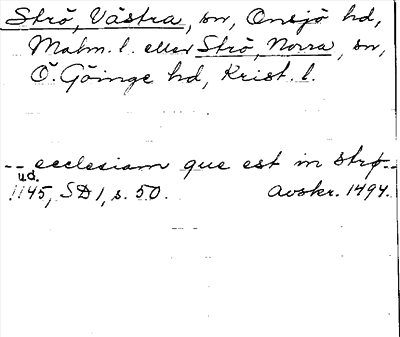 Strö, Västra, sn, Onsjö hd,
Malm. l. eller Strö, Norra, sn,
Ö. Göinge hd, Krist. l.
-- ecclesiam que est in strø--
ud.
1145, SD 1, s. 50. Avskr. 1494.